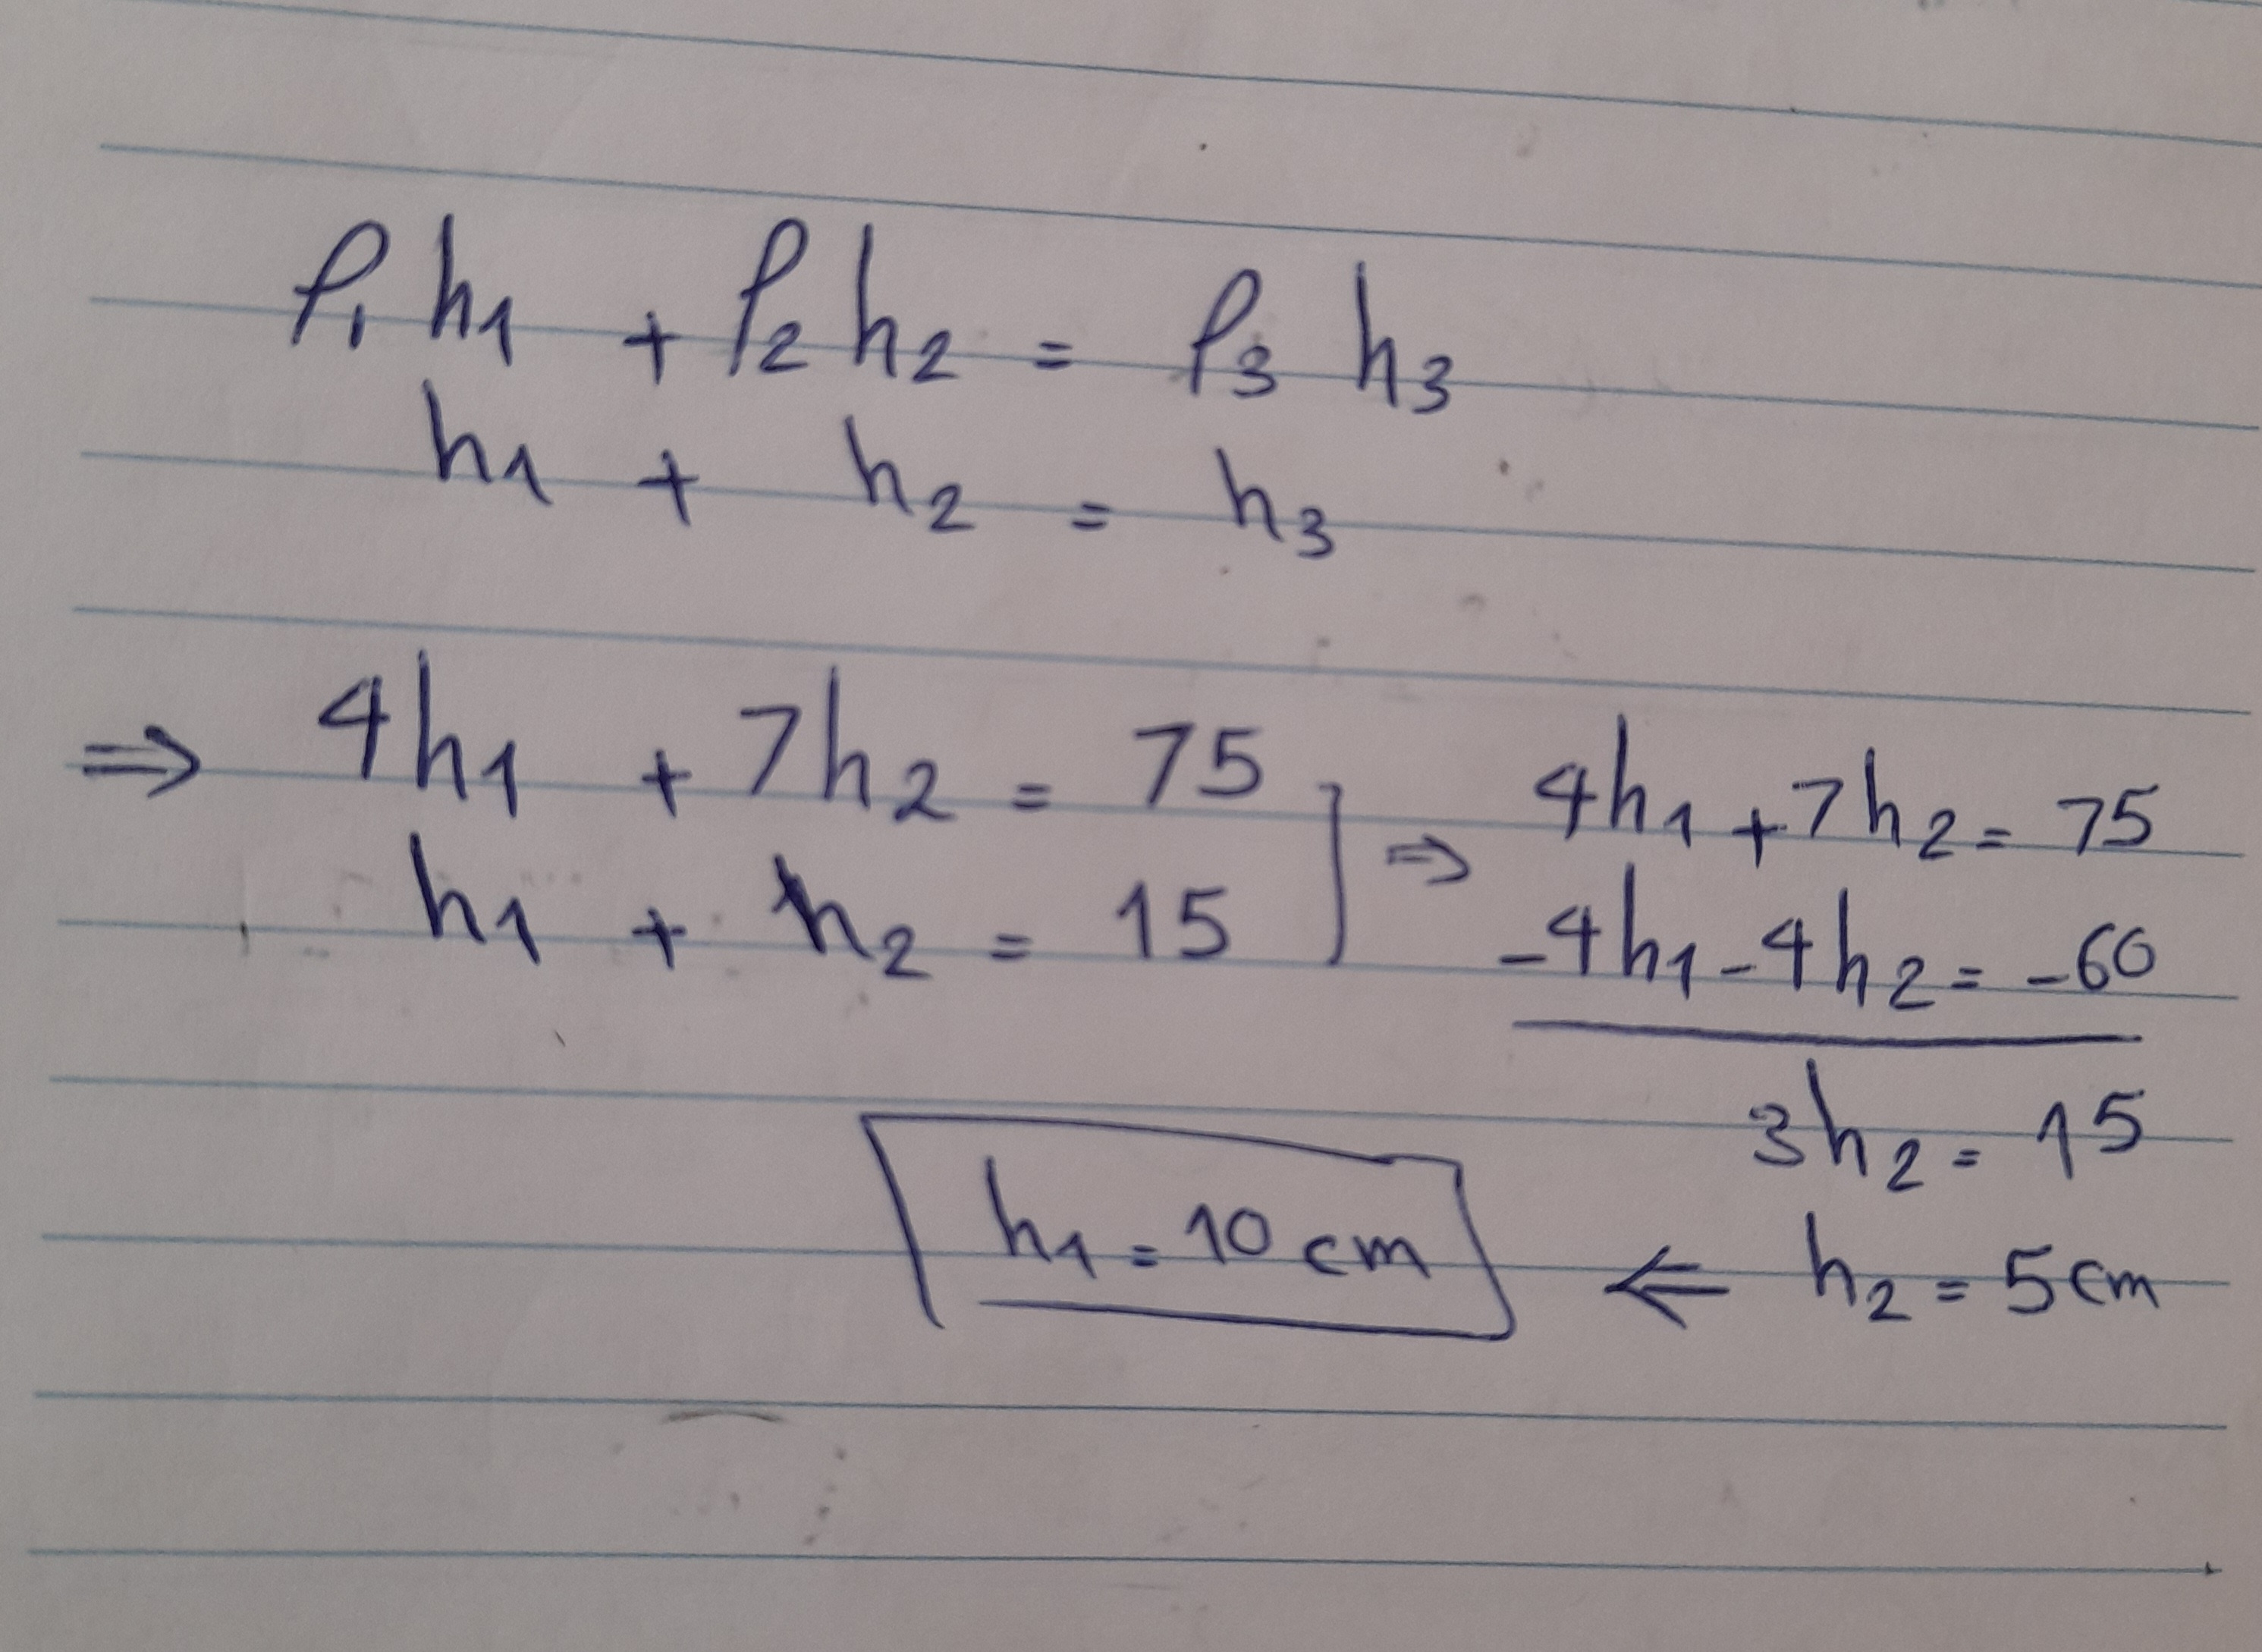 ρ₁ h₁ + ρ₂ h₂ = ρ₃ h₃
h₁ + h₂ = h₃
⇒ 4h₁ + 7h₂ = 75
h₁ + h₂ = 15
] ⇒ 4h₁ + 7h₂ = 75
-4h₁ - 4h₂ = -60
3h₂ = 15
h₁ = 10 cm ⇐ h₂ = 5cm